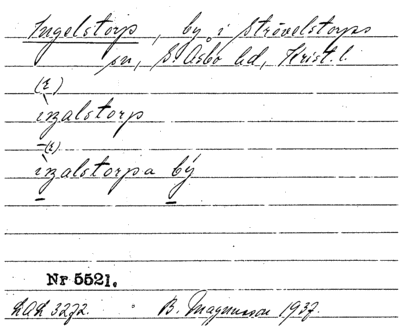 Ingelstorp, by i Strövelstorps
sn, S. Åsbo hd, Krist. l.
(ɛ)
iŋalstorp
(ɛ)
iŋalstorpa by
Nr 5521.
LAL 3272. B. Magnusson 1937.